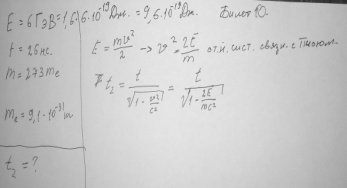 E = 6 ГэВ = 1,6·6·10⁻¹⁹ Дж. = 9,6·10⁻¹⁹ Дж. Билет 10.
t = 26 нс.
m = 273 mₑ
mₑ = 9,1·10⁻³¹ кг
t₂ = ?
E = mv²/2 → v² = 2E/m отн. сист. связи. с
t₂ = t/√(1 - v²/c²) = t/√(1 - 2E/mc²)